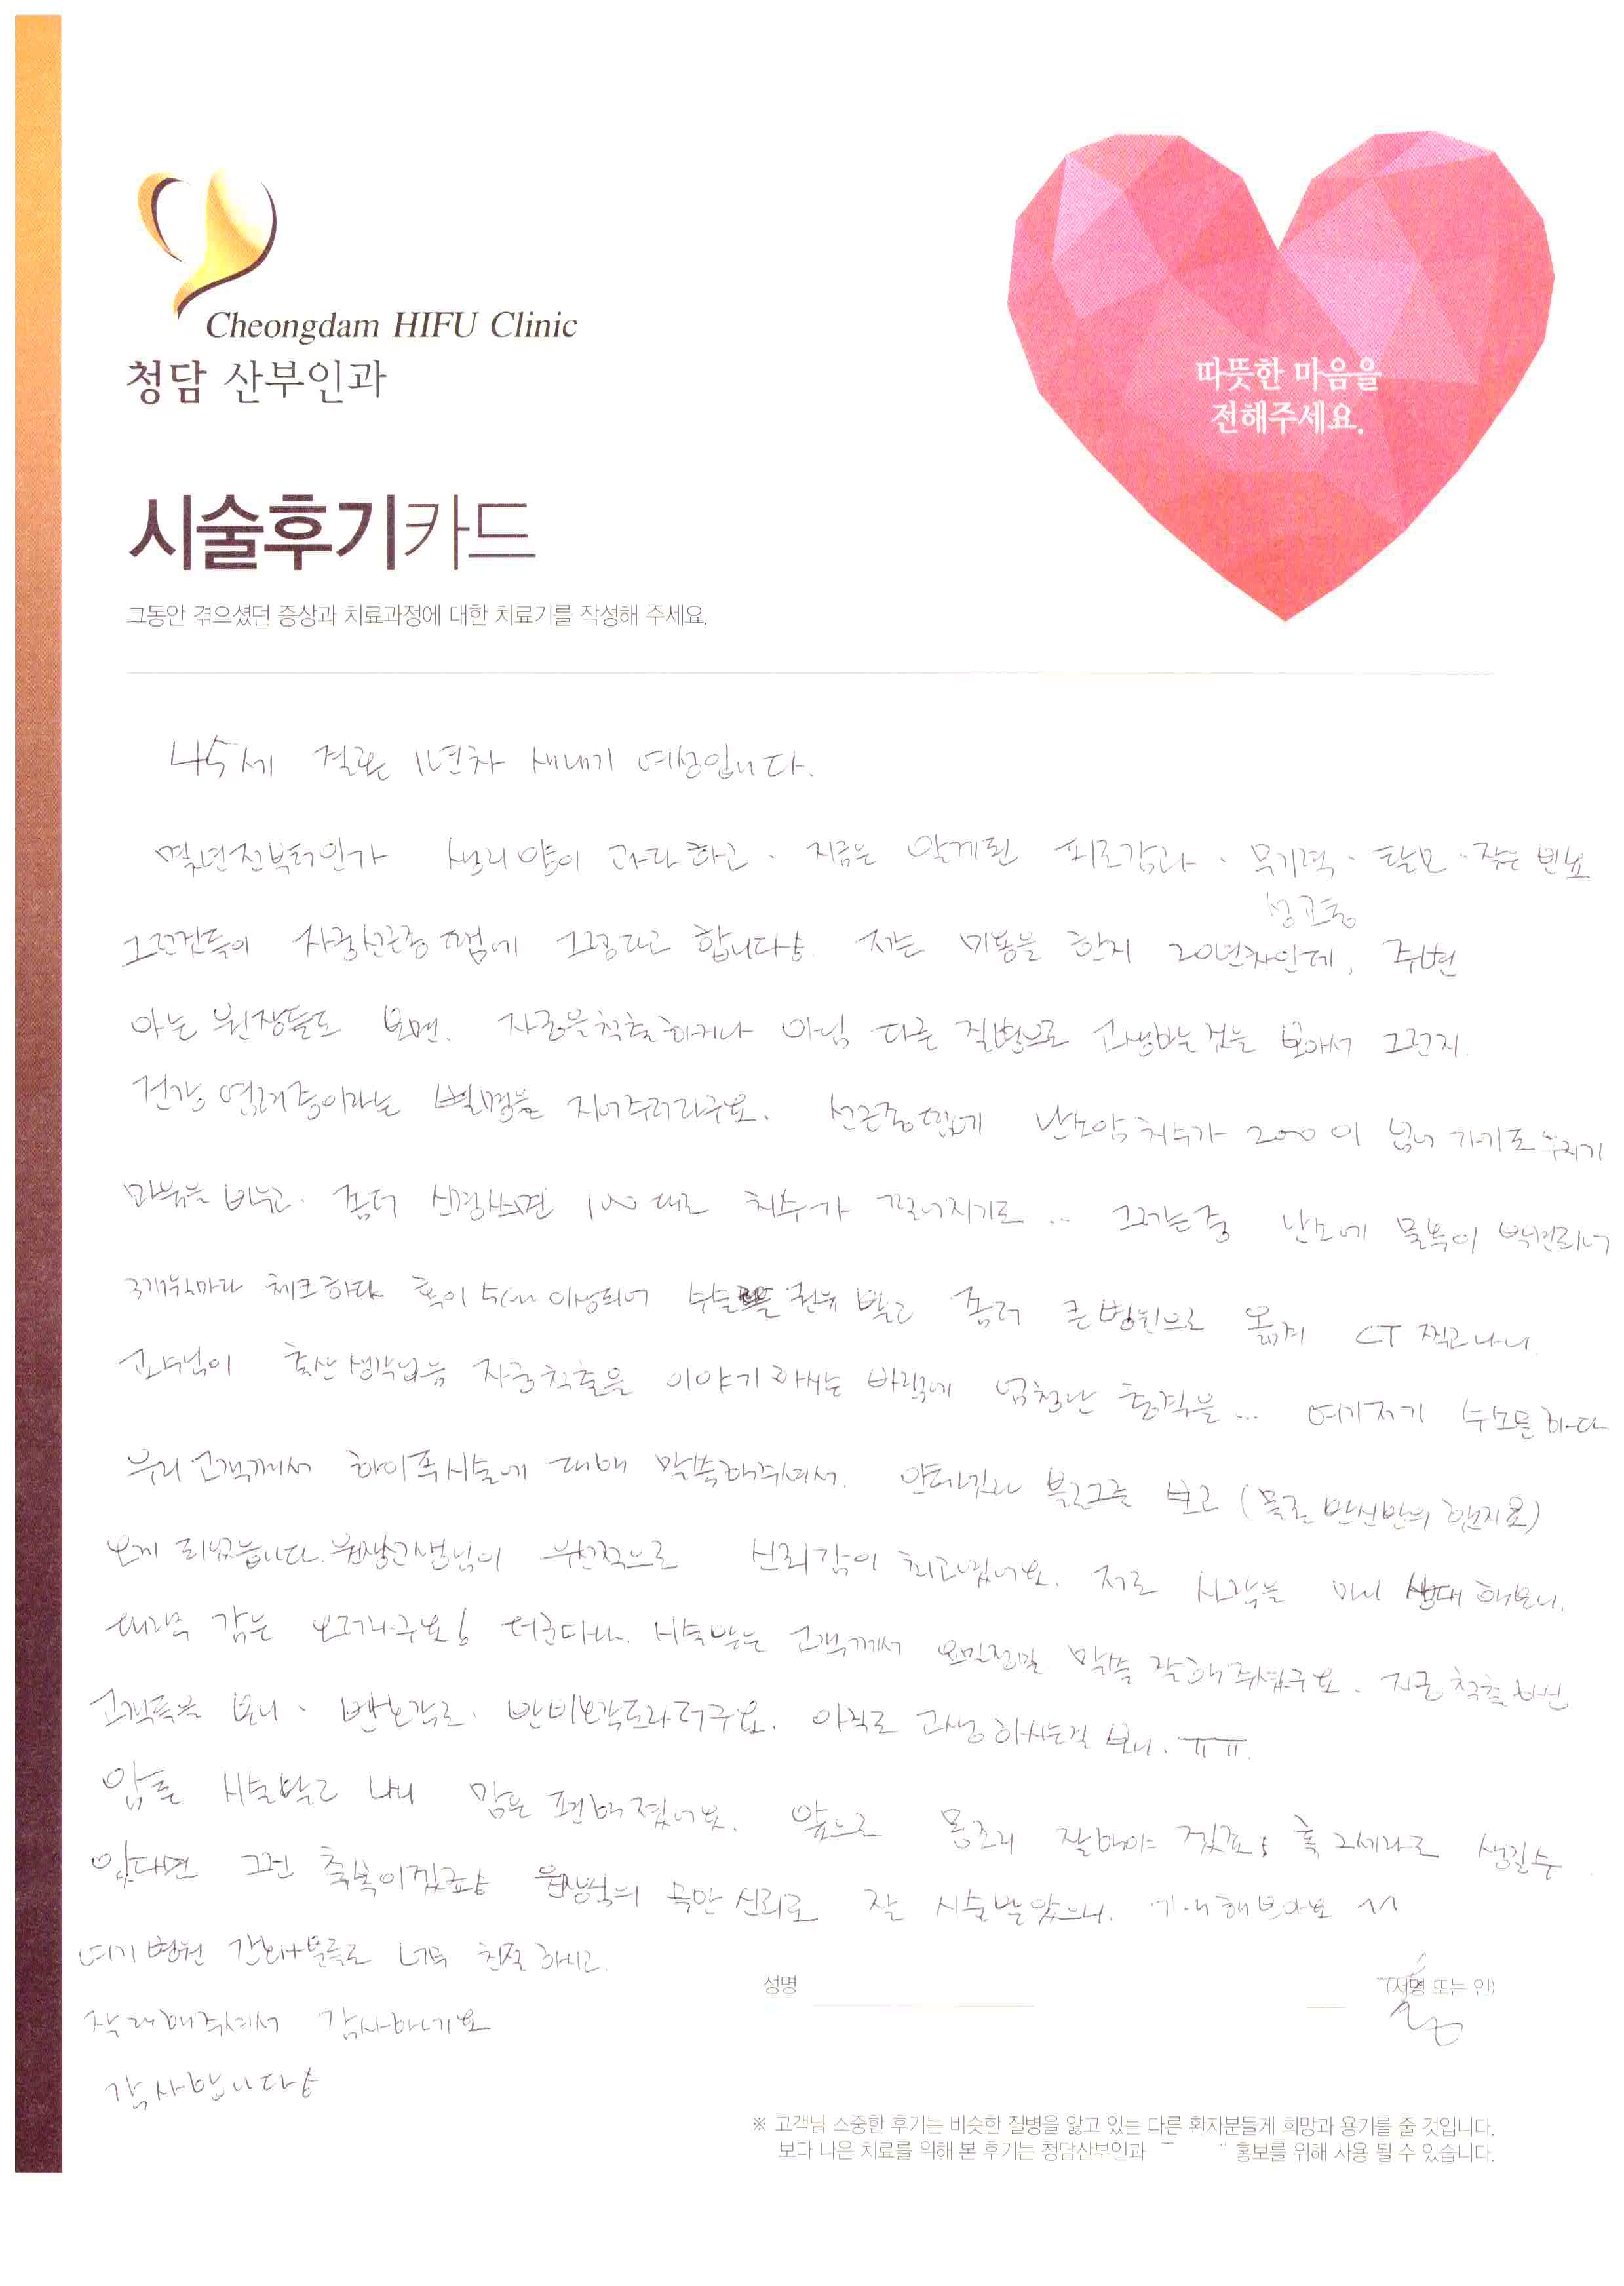 Cheongdam HIFU Clinic
청담 산부인과
따뜻한 마음을
전해주세요.
시술후기카드
그동안 겪으셨던 증상과 치료과정에 대한 치료기를 작성해 주세요.
45세 결혼 1년차 새내기 여성입니다.
몇년전부터인가 생리양이 과다하고. 지금은 알게된 피로감과. 무기력. 탈모. 잦은 빈뇨
성교통
그런것들이 자궁선근증 땜에 그렇다고 합니다. 저는 미용을 한지 20년차인데, 주변
아는 원장들도 보면. 자궁을 적출하거나 아님 다른 질병으로 고생하는 것을 보아서 그런지
건강 염려증이라는 별명을 지어주더라구요. 선근증땜에 난소암 치수가 200이 넘어 가기도
마음을 비우고. 좀더 신경쓰면 100대로 치수가 떨어지기도 .. 그러는중 난소에 물혹이 발견되어
3개월마다 체크하다 혹이 5cm 이상되어 수술 권유 받고 좀더 큰병원으로 옮겨 CT 찍고나니
교수님이 출산 생각없음 자궁적출을 이야기 하시는 바람에 엄청난 충격을 ... 여기저기 수소문하다
우리 고객께서 하이푸시술에 대해 말씀해주셔서. 블로그를 보고 (물론 반신반의 했지요)
오게 되었습니다. 원장선생님이 우선적으로 신뢰감이 최고였어요. 저도 사람을 많이 상대 해보니.
대략 감은 오더라구요! 더군다나 시술받은 고객께서 말씀 잘해주셨구요. 자궁적출 하신
고객들을 보니. 아직도 고생하시는걸 보니. ㅠㅠ.
시술받고 나니 맘은 편해졌어요. 앞으로 몸조리 잘해야 겠죠; 혹 2세라도 생길수
있다면 그건 축복이겠죠 원장님의 신뢰로 잘 시술받았으니. 기대해보아요 ^^
여기 병원 간호사분들도 너무 친절하시고.
잘 대해주셔서 감사하네요
감사합니다
성명
(서명 또는 인)
※ 고객님 소중한 후기는 비슷한 질병을 앓고 있는 다른 환자분들게 희망과 용기를 줄 것입니다.
보다 나은 치료를 위해 본 후기는 청담산부인과 홍보를 위해 사용 될 수 있습니다.